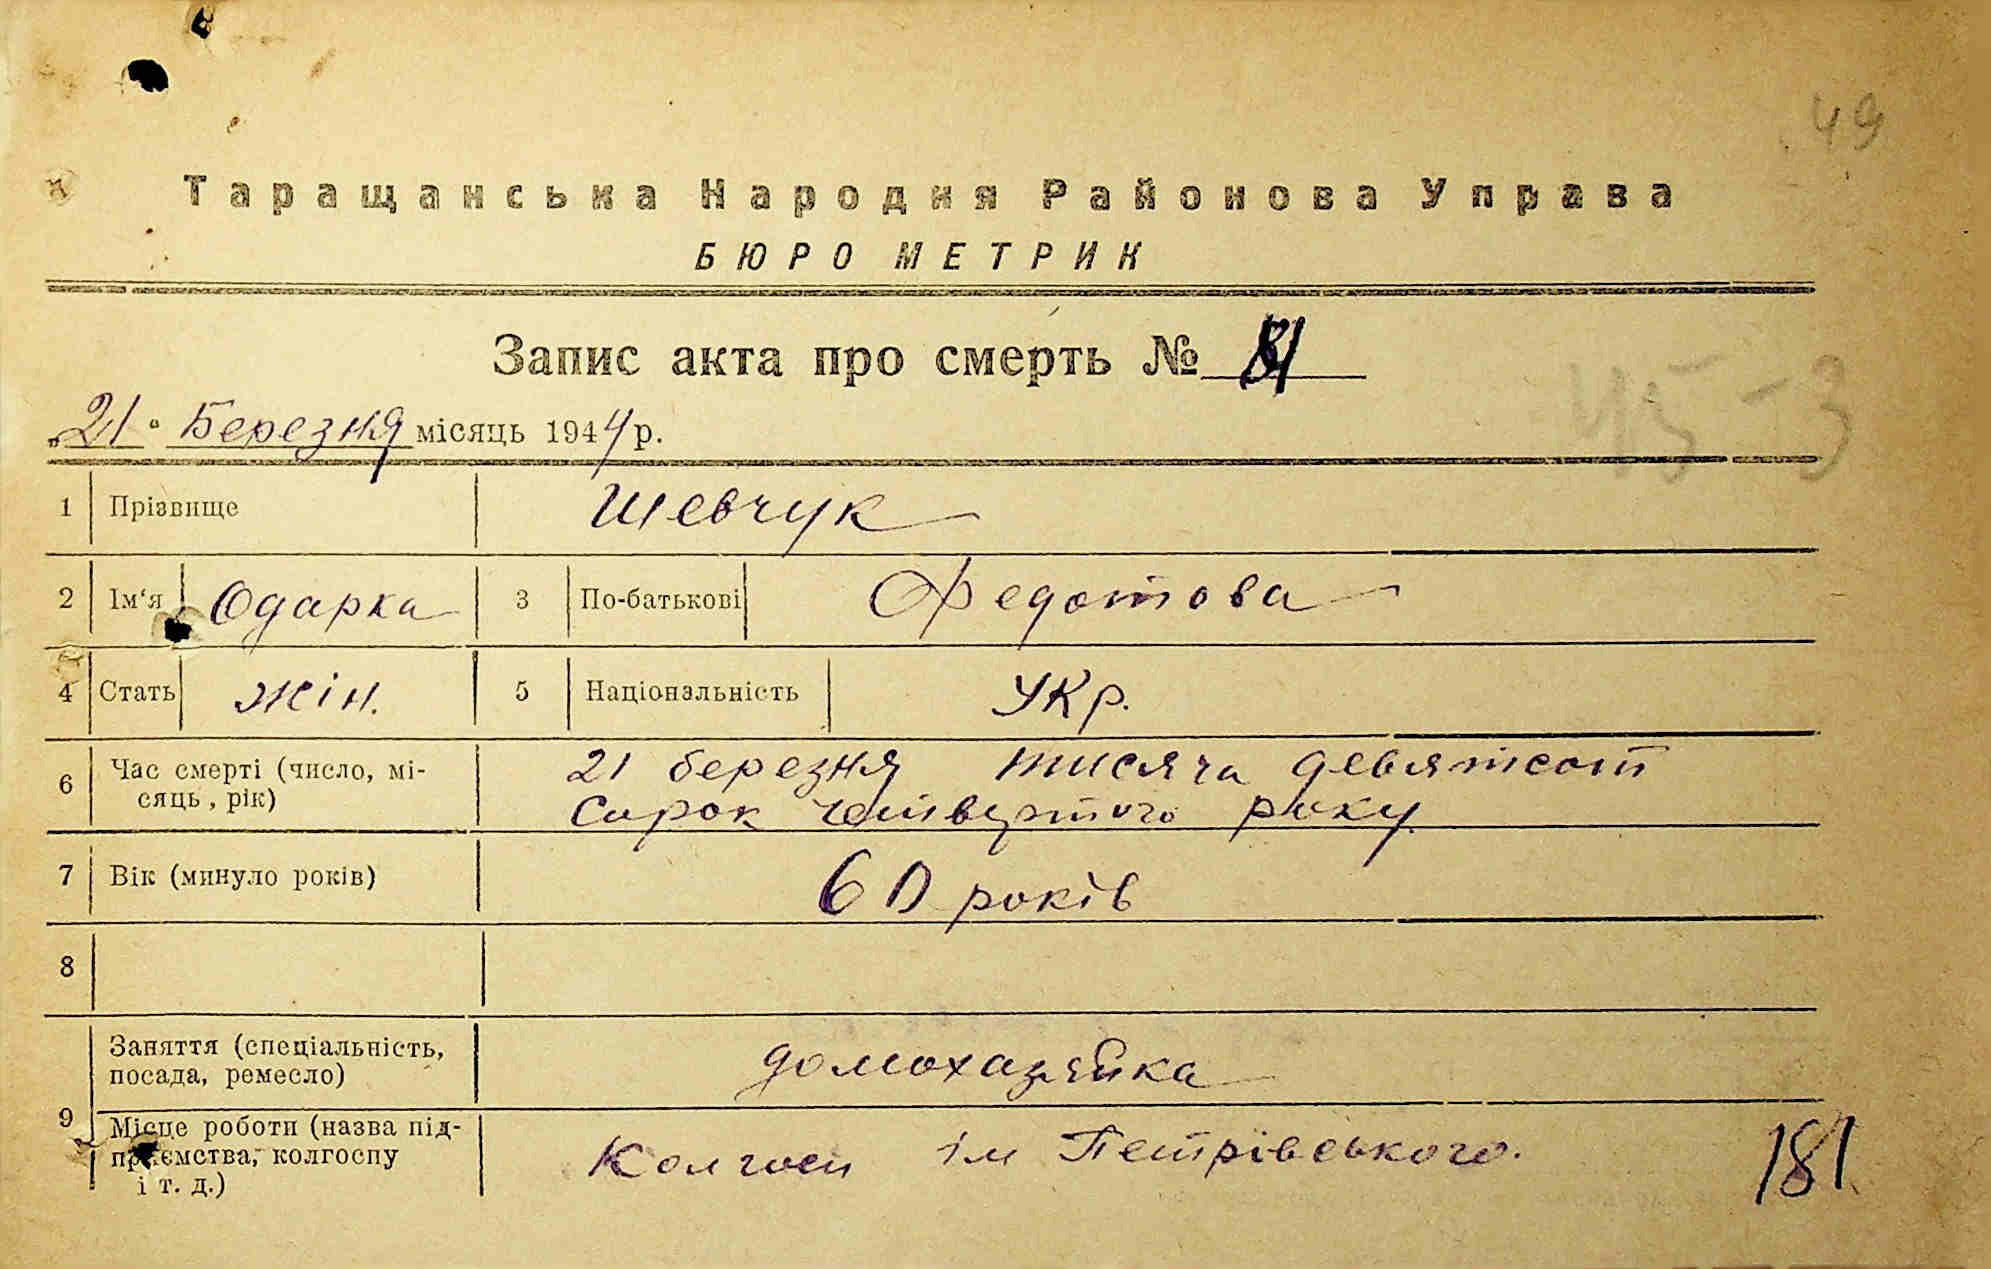 49
Таращанська Народня Районова Управа
БЮРО МЕТРИК
Запис акта про смерть № 81
45-3
„21“ Березня місяць 1944 р.
1 Прізвище Шевчук
2 Ім‘я Одарка 3 По-батькові Федотова
4 Стать жін. 5 Національність Укр.
6 Час смерті (число, мі-
сяць, рік)
21 березня тисяча девятсот
сорок четвертого року
7 Вік (минуло років) 60 років
8
9 Заняття (спеціальність,
посада, ремесло)
домохазяйка
Місце роботи (назва під-
приємства, колгоспу
і т. д.)
Колгосп ім Петрівського.
181